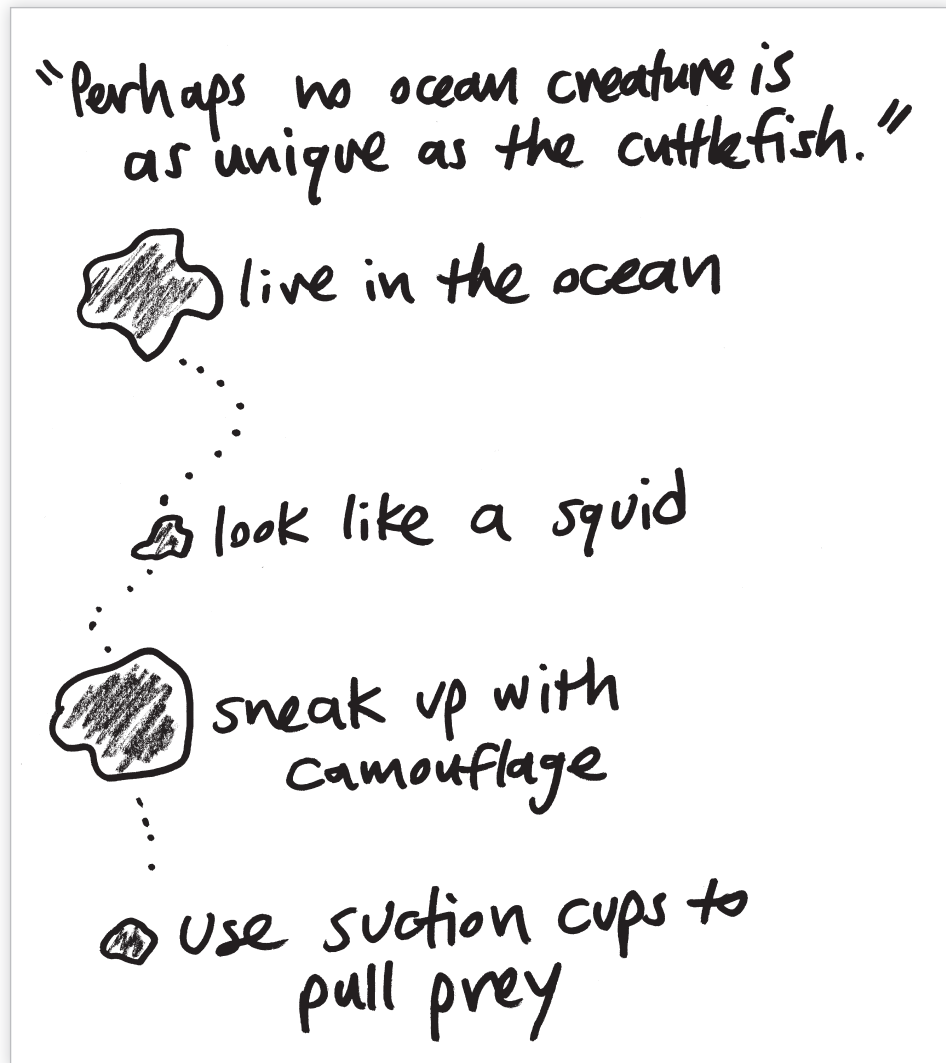 "Perhaps no ocean creature is
as unique as the cuttlefish."
live in the ocean
look like a squid
sneak up with
camouflage
use suction cups to
pull prey